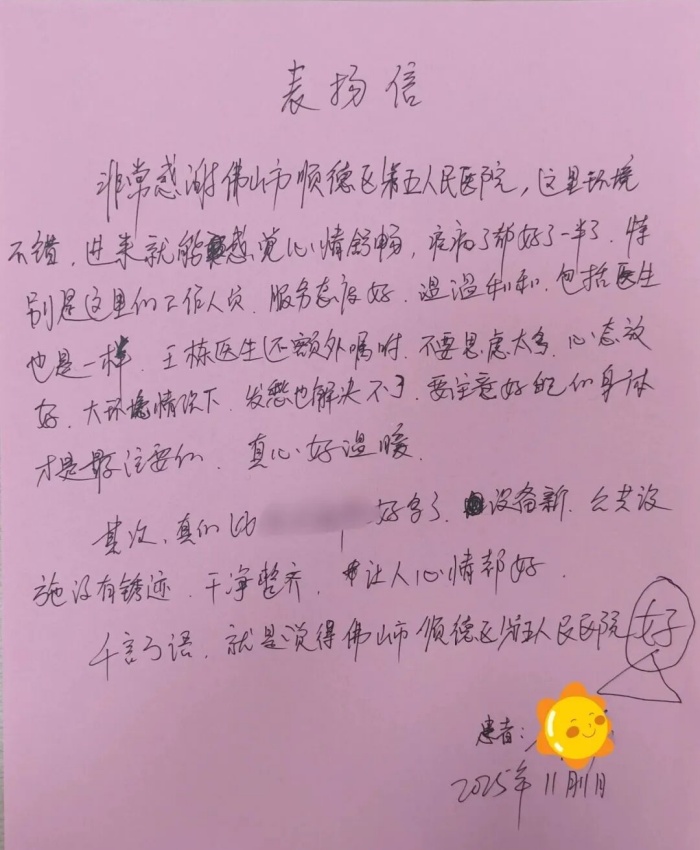 表扬信
非常感谢佛山市顺德区第五人民医院，这里环境
不错，进来就能感觉心情舒畅，疾病了都好了一半了，特
别是这里的工作人员，服务态度好，温温和和，包括医生
也是一样，王栋医生还额外嘱咐，不要思虑太多，心态放
好，大环境情况下，发愁也解决不了，要注意好自己的身体
才是最主要的，真心好温暖。
其次，真的比 好多了，设备新，公共设
施没有锈迹，干净整齐，让人心情都好。
千言万语，就是觉得佛山市顺德区第五人民医院好
患者：
2025年11月1日